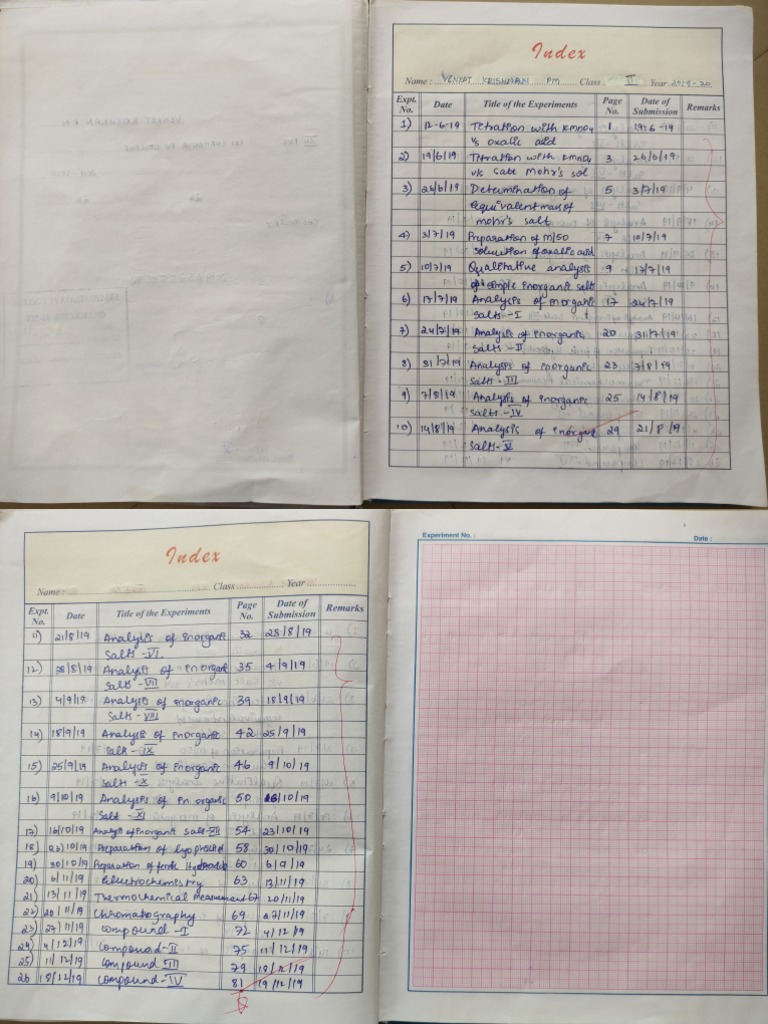 Index
Name : VENKAT KRISHNAN PM Class II Year 2019-20
Expt. No. Date Title of the Experiments Page No. Date of Submission Remarks
1) 12-6-19 Titration with kmno4 1 19-6-19
vs oxalic acid
2) 19/6/19 Titration with kmno4 3 26/6/19
vs Mohr's sol
3) 26/6/19 Determination of 5 3/7/19
equivalent mass of
mohr's salt
4) 3/7/19 Preparation of M/50 7 10/7/19
solution of oxalic acid
5) 10/7/19 Qualitative analysis 9 17/7/19
of simple inorganic salts
6) 17/7/19 Analysis of inorganic 17 24/7/19
Salts-I
7) 24/7/19 Analysis of inorganic 20 31/7/19
Salts-II
8) 31/7/19 Analysis of inorganic 23 7/8/19
Salts-III
9) 7/8/19 Analysis of inorganic 25 14/8/19
Salts-IV
10) 14/8/19 Analysis of inorganic 29 21/8/19
Salts-V
Index
Name : Class Year
Expt. No. Date Title of the Experiments Page No. Date of Submission Remarks
11) 21/8/19 Analysis of inorganic 32 28/8/19
Salts-VI
12) 28/8/19 Analysis of inorganic 35 4/9/19
Salts-VII
13) 4/9/19 Analysis of inorganic 39 18/9/19
Salts-VIII
14) 18/9/19 Analysis of inorganic 42 25/9/19
Salts-IX
15) 25/9/19 Analysis of inorganic 46 9/10/19
Salts-X
16) 9/10/19 Analysis of in organic 50 16/10/19
Salt-XI
17) 16/10/19 Analysis of inorganic Salt-XII 54 23/10/19
18) 23/10/19 Preparation of lyophilic 58 30/10/19
19) 30/10/19 Preparation of ferric Hydroxide 60 6/9/19
20) 6/11/19 electrochemistry 63 13/11/19
21) 13/11/19 Thermochemical measurement 67 20/11/19
22) 20/11/19 chromatography 69 27/11/19
23) 27/11/19 compound-I 72 4/12/19
24) 4/12/19 compound-II 75 11/12/19
25) 11/12/19 compound III 79 18/12/19
26 18/12/19 compound-IV 81 19/12/19
Experiment No. :
Date :